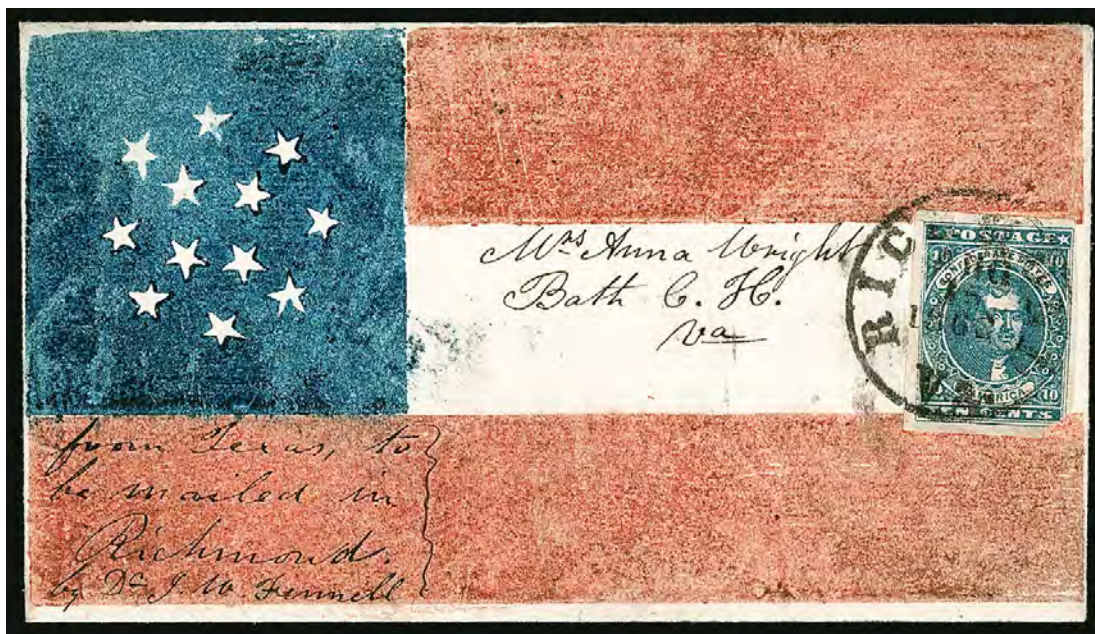 Mrs Anna Wright
Bath C. H.
Va
RIC
VA
POSTAGE
10 10
CONFEDERATE STATES
AMERICA
10 10
TEN CENTS
from Texas, to
be mailed in
Richmond.
by Dr J. W. Fennell